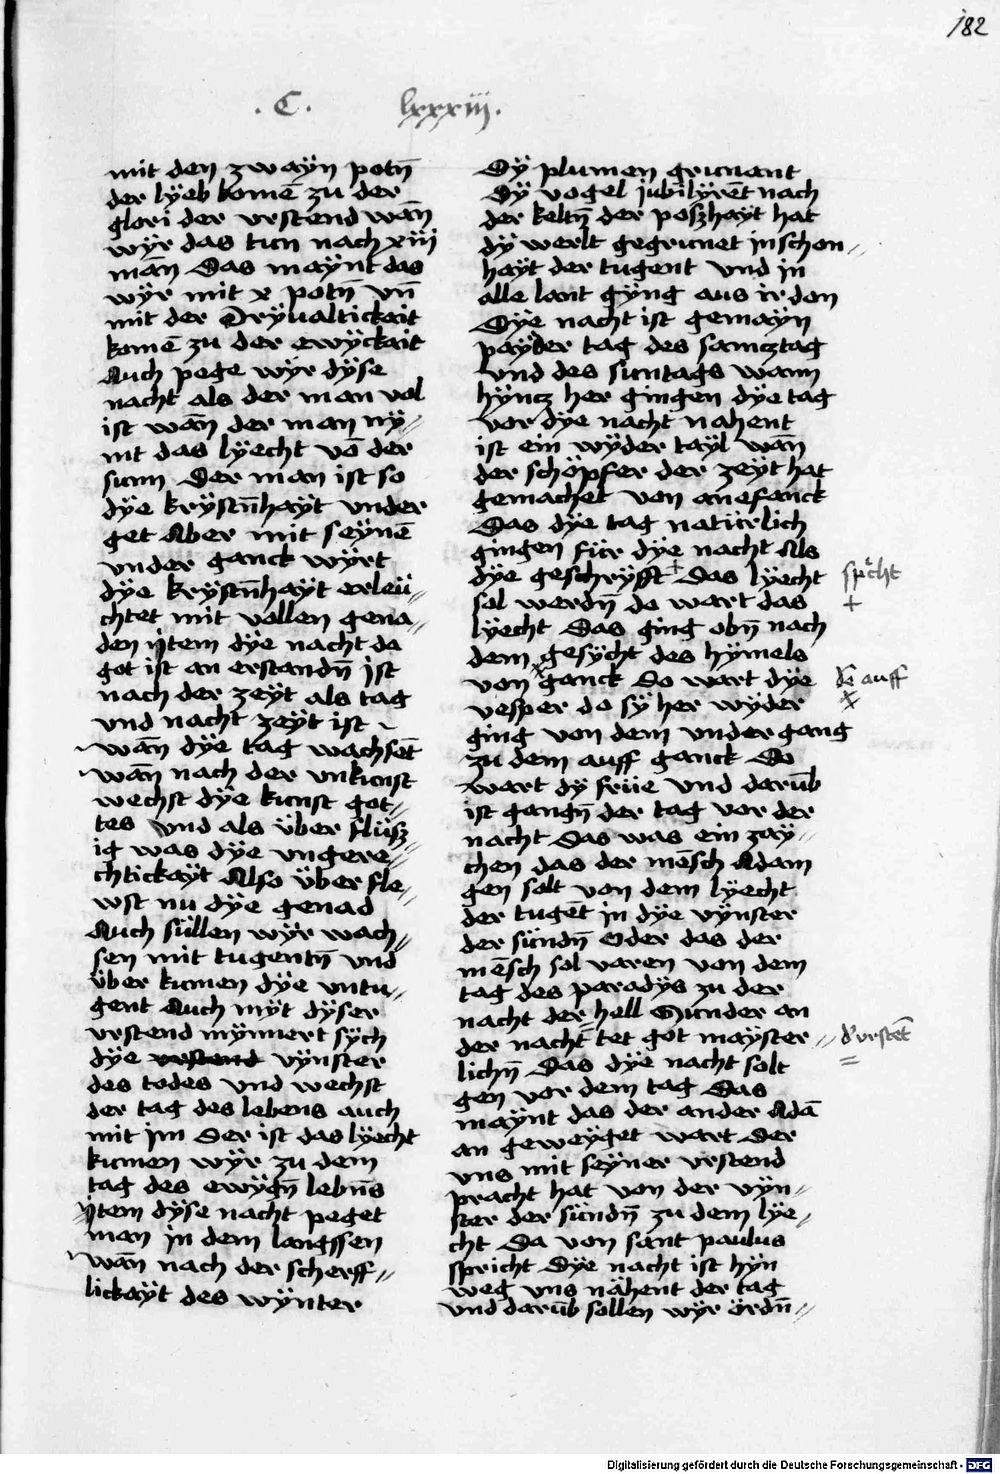 182
. C. lxxxiij.
mit den zwaÿn potn̄
der lÿeb komē zu der
glori der vrstend wān
wÿr das tun nach xiiij
mān Das maÿnt das
wÿr mit x potn̄ vn̄
mit der Drÿualtickait
komē zu der ewÿckait
Auch pege wÿr dÿse
nacht als der man vol
ist wān der man nÿ⸗
mt das lÿecht vō der
sunn Der man ist so
dÿe krÿstn̄haÿt vnder
get Aber mit seÿnē
vnder ganck wÿrt
dÿe krÿstn̄haÿt erleü⸗
chtet mit vollen gena⸗
den ijtem dÿe nacht da
got ist an erstandn̄ jst
nach der zeÿt als tag
vnd nacht zeÿt ist
wān dÿe tag wachsēt
wān nach der vnkunst
wechst dÿe kunst got⸗
tes vnd als über flüsz
ig was dÿe vngere⸗
chtickaÿt Also über fle⸗
wst nu dÿe genad
Auch süllen wÿr wach⸗
sen mit tugentn̄ vnd
über kumen dÿe vntu⸗
gent Auch mÿt dÿser
vrstend mÿnnert sÿch
dÿe vrstend vÿnster
des todes vnd wechst
der tag des lebens auch
mit jm Der ist das lÿecht
kumen wÿr zu dem
tag des ewÿgn̄ lebn̄s
ijtem dÿse nacht peget
man in dem langssen
wān nach der scherff⸗
lickaÿt des wÿnter
Dÿ plumen grunant
Dÿ vogel jubilÿrēt nach
der keltn̄ der poszhaÿt hat
dÿ werlt gegrunet in schon⸗
haÿt der tugent vnd in
alle lant gÿng aus ir don
Dÿe nacht ist gemaÿn
paÿder tag des samcztag
vnd des suntags wann
hÿncz her gingen dÿe tag
vor dÿe nacht nahent
ist ein wÿder taÿl wān
der schöpfer der zeÿt hat
gemachet von anefanck
Das dÿe tag natürlich
gingen für dÿe nacht Als
dÿe geschrÿfft + Das lÿecht
spͥcht +
sol werdn̄ do wart das
lÿecht Das ging obn̄ nach
dem gesÿcht des hÿmels
von x ganck Do wart dÿe
dē auff x
vesper do sÿ her wÿder
ging von dem vnder gang
zu dem auff ganck Do
wart dÿ früe vnd darūb
ist gangn̄ der tag vor der
nacht Das was ein zaÿ⸗
chen das der mēsch Adam
gen solt von dem lÿecht
der tugēt in dÿe vÿnster
der sündn̄ Oder das der
mēsch sol varen von dem
tag des paradÿs zu der
nacht der hell Sunder an
der nacht = tet got maÿster⸗
d' vrstēt =
lichn̄ Das dÿe nacht solt
gen vor dem tag Das
maÿnt das der ander Adā
an geweÿget wart Der
vns mit seÿner vrstend
pracht hat von der vÿn⸗
ster der sündn̄ zu dem lÿe⸗
cht Da von sant paulus
spricht Dÿe nacht ist hÿn
weg vns nähent der tag
vnd darūb sollen wÿr ördn̄⸗
Digitalisierung gefördert durch die Deutsche Forschungsgemeinschaft - DFG